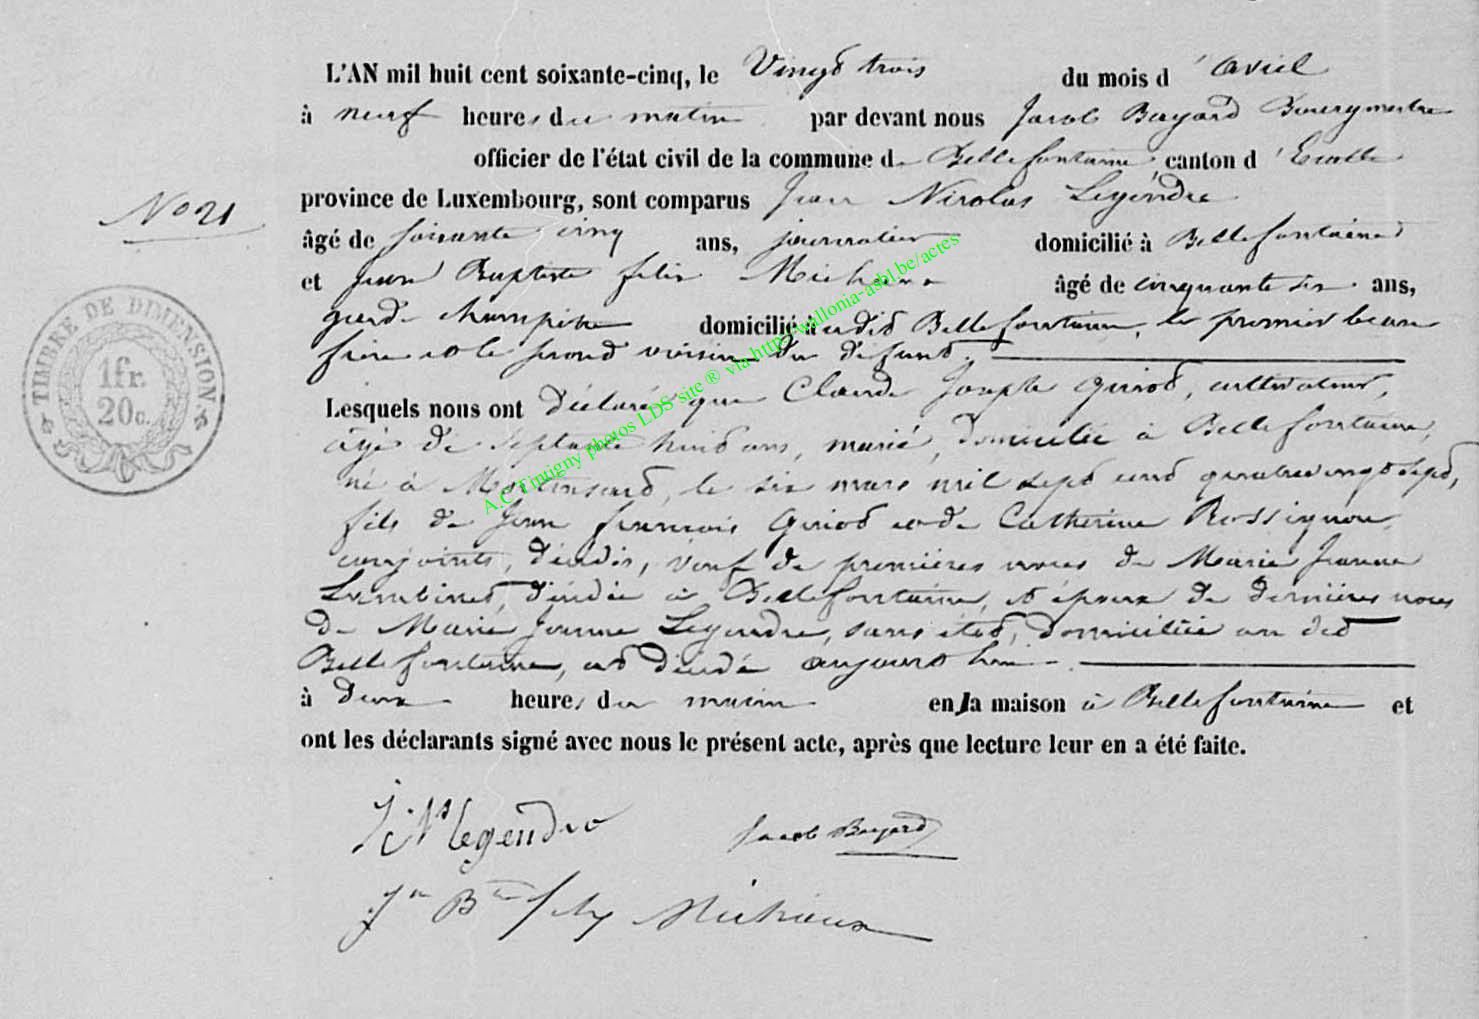 L'AN mil huit cent soixante-cinq, le Vingt trois du mois d'Avril
à neuf heures du matin par devant nous Jacob Bayard Bourgmestre
officier de l'état civil de la commune de Bellefontaine canton d'Etalle
province de Luxembourg, sont comparus Jean Nicolas Legendre
No 21
âgé de soixante cinq ans, journalier domicilié à Bellefontaine
et Jean Baptiste felix Michaux âgé de cinquante six ans,
garde champêtre domicilié à udit Bellefontaine, le premier beau
frère et le second voisin du défunt.
TIMBRE DE DIMENSION
1fr.
20c.
Lesquels nous ont déclaré que Claude Joseph Guiot, cultivateur,
âgé de septante huit ans, marié, domicilié à Bellefontaine,
né à Martinsart, le six mars mil sept cent quatre vingt sept,
fils de Jean francois Guiot et de Catherine Rossignon,
conjoints, décédés, veuf de premières noces de Marie Jeanne
Lambinet, décédée à Bellefontaine, et époux de dernières noces
de Marie Jeanne Legendre, sans état, domiciliée au dit
Bellefontaine, est décédé aujourd'hui
à deux heures du matin en sa maison à Bellefontaine et
ont les déclarants signé avec nous le présent acte, après que lecture leur en a été faite.
J: Ns legendre Jacob Bayard
Jn Bte felix Michaux
A.C Tintigny photos LDS site ® via http://wallonia-asbl.be/actes